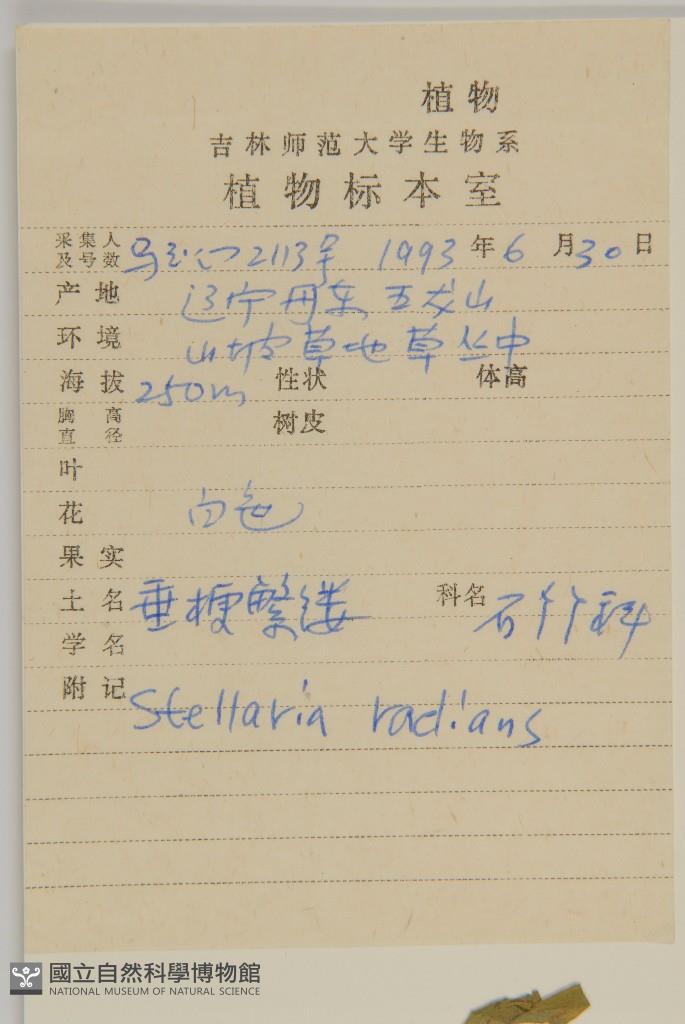 植物
吉林师范大学生物系
植物标本室
采集人及号数 2113号 1993年6月30日
产地 辽宁丹东五龙山
环境 山坡草地草丛中
海拔 250m 性状 体高
胸高直径 树皮
叶
花 白色
果实
土名 垂梗繁缕 科名 石竹科
学名
附记 Stellaria radians
國立自然科學博物館
NATIONAL MUSEUM OF NATURAL SCIENCE